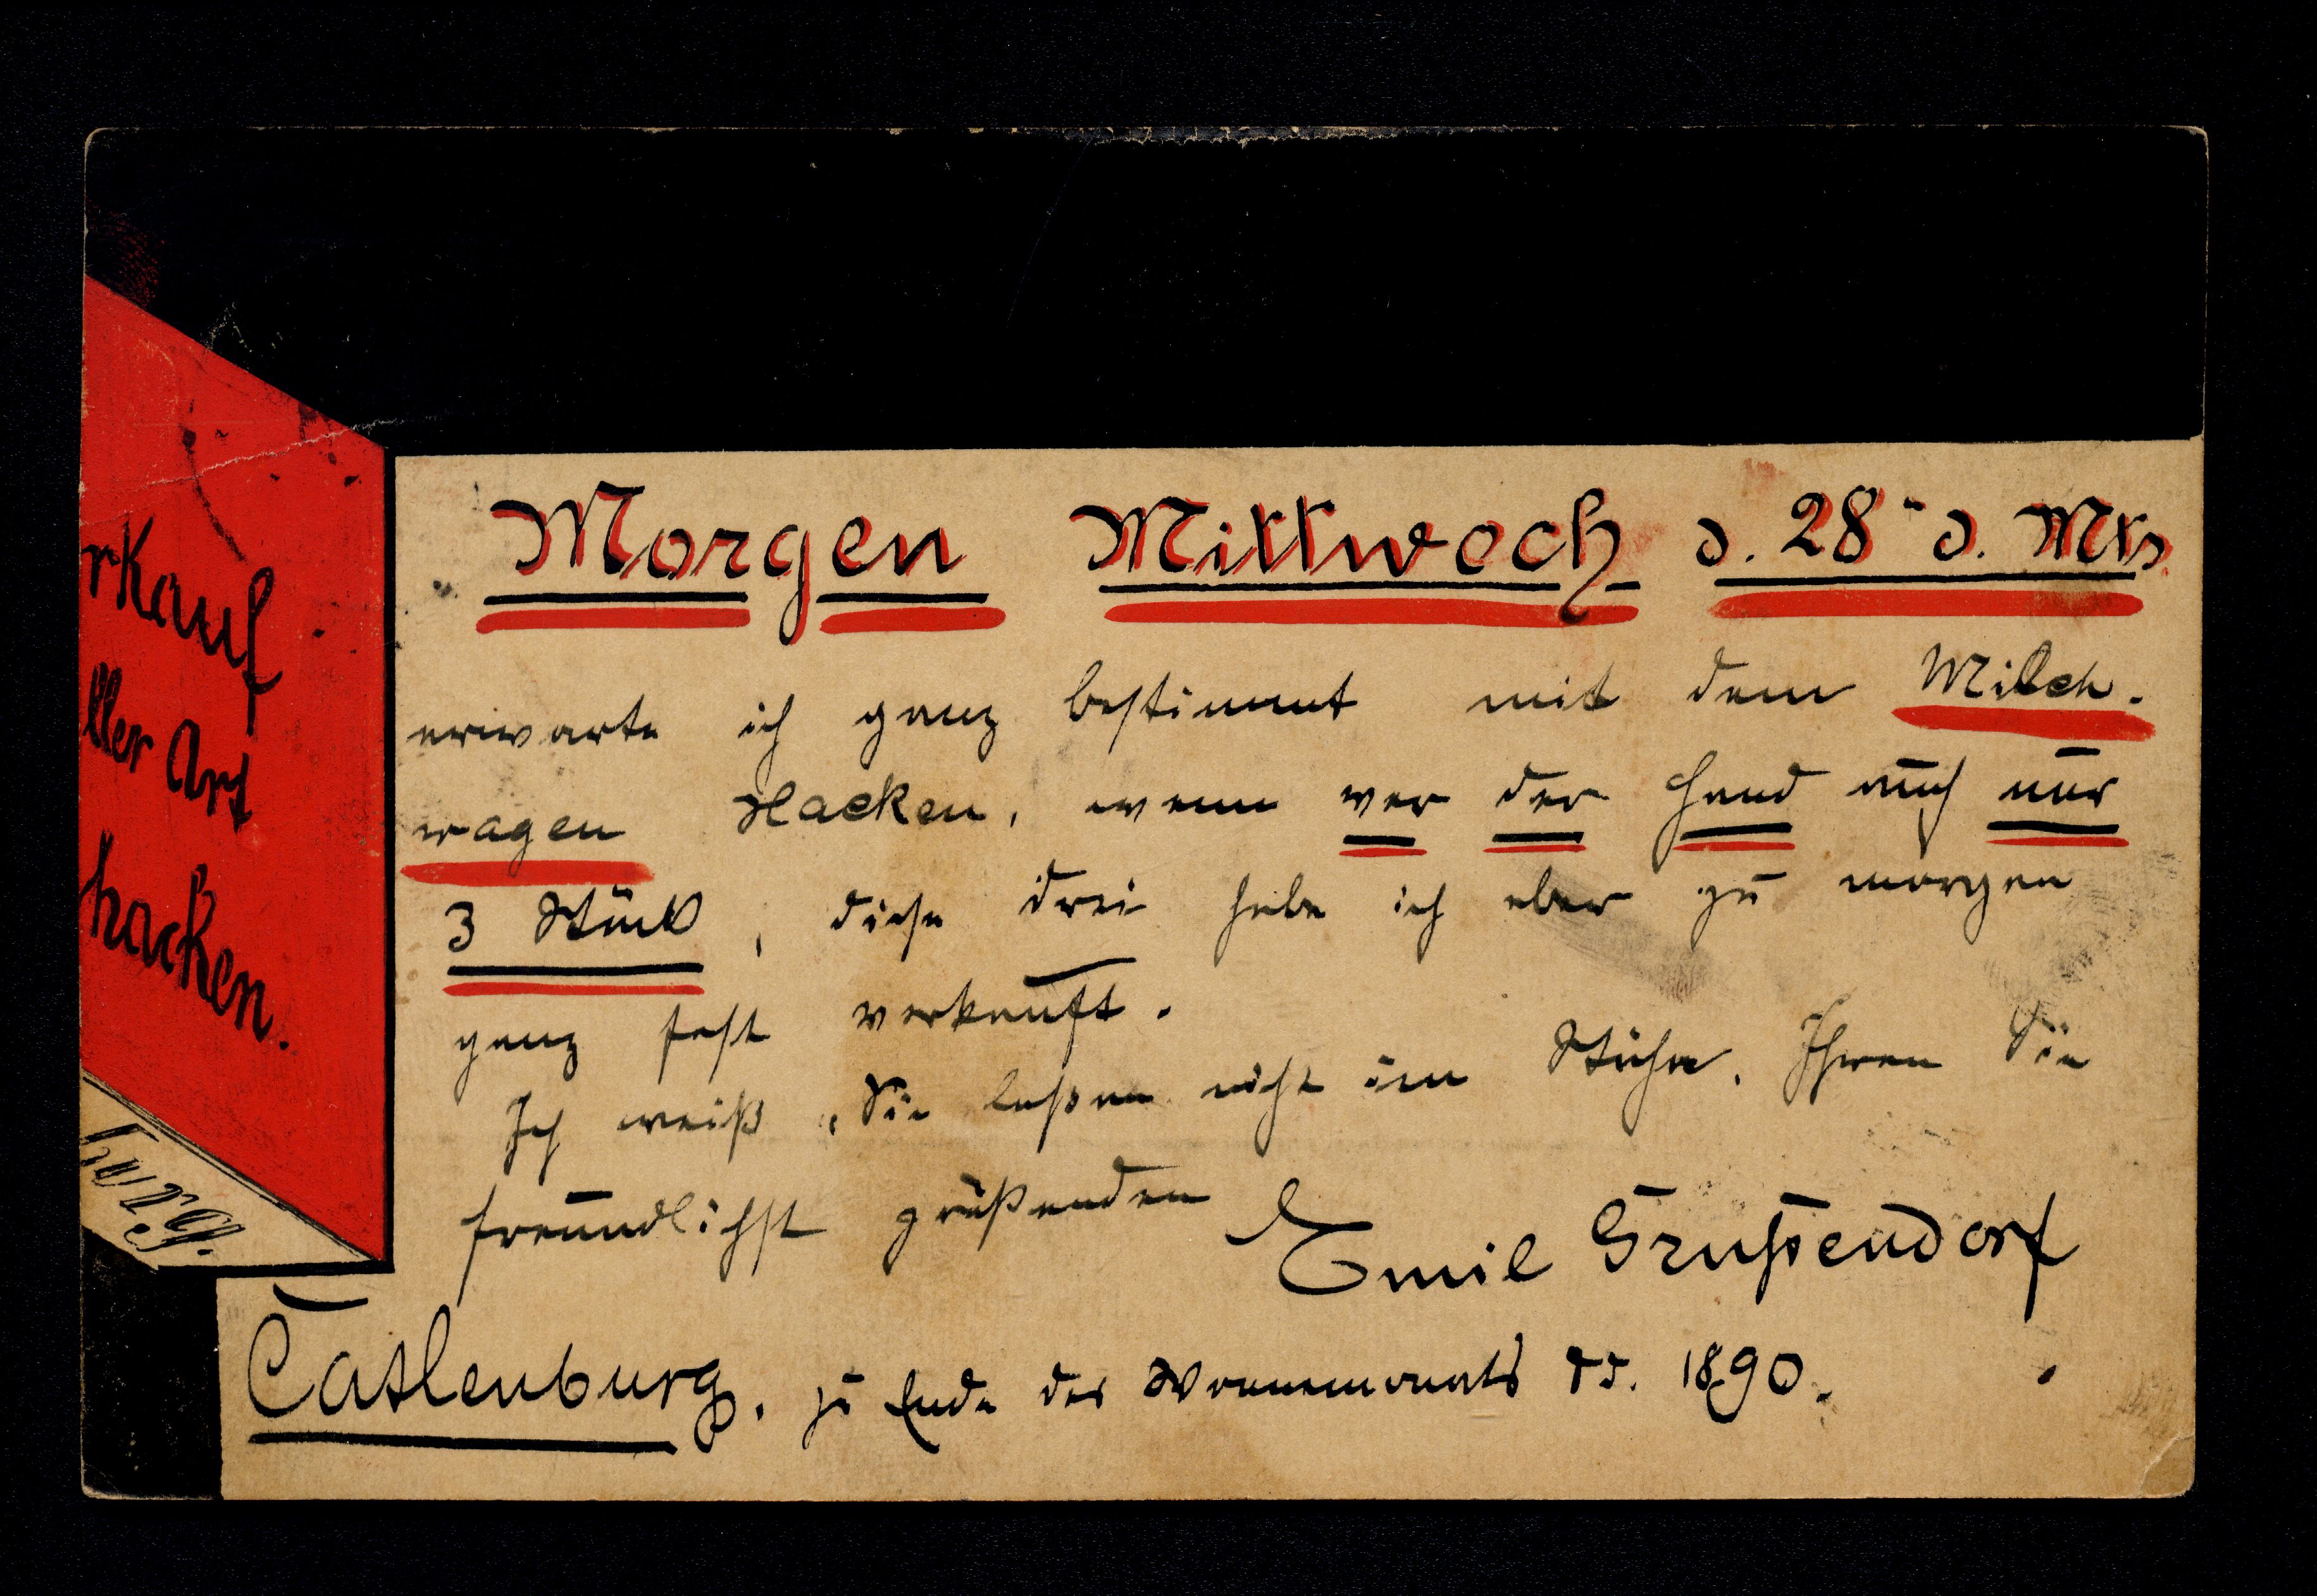 rkauf
ller Art
hacken.
burg.
Morgen Mittwoch d. 28 d. Mts
erwarte ich ganz bestimmt mit dem Milch.
wagen Hacken, wenn vor der Hand auch nur
3 Stück, diese drei habe ich aber zu morgen
ganz fest verkauft.
Ich weiß, Sie laßen nicht im Stiche. Ihren Sie
freundlichst grüßenden Emil Grußendorf
Catlenburg, zu Ende des Wonnemonats dJ. 1890.